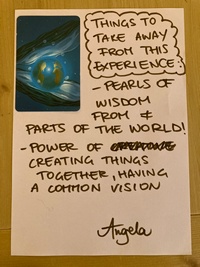 THINGS TO
TAKE AWAY
FROM THIS
EXPERIENCE:
- PEARLS OF
WISDOM
FROM 4
PARTS OF THE WORLD!
- POWER OF
CREATING THINGS
TOGETHER, HAVING
A COMMON VISION
Angela